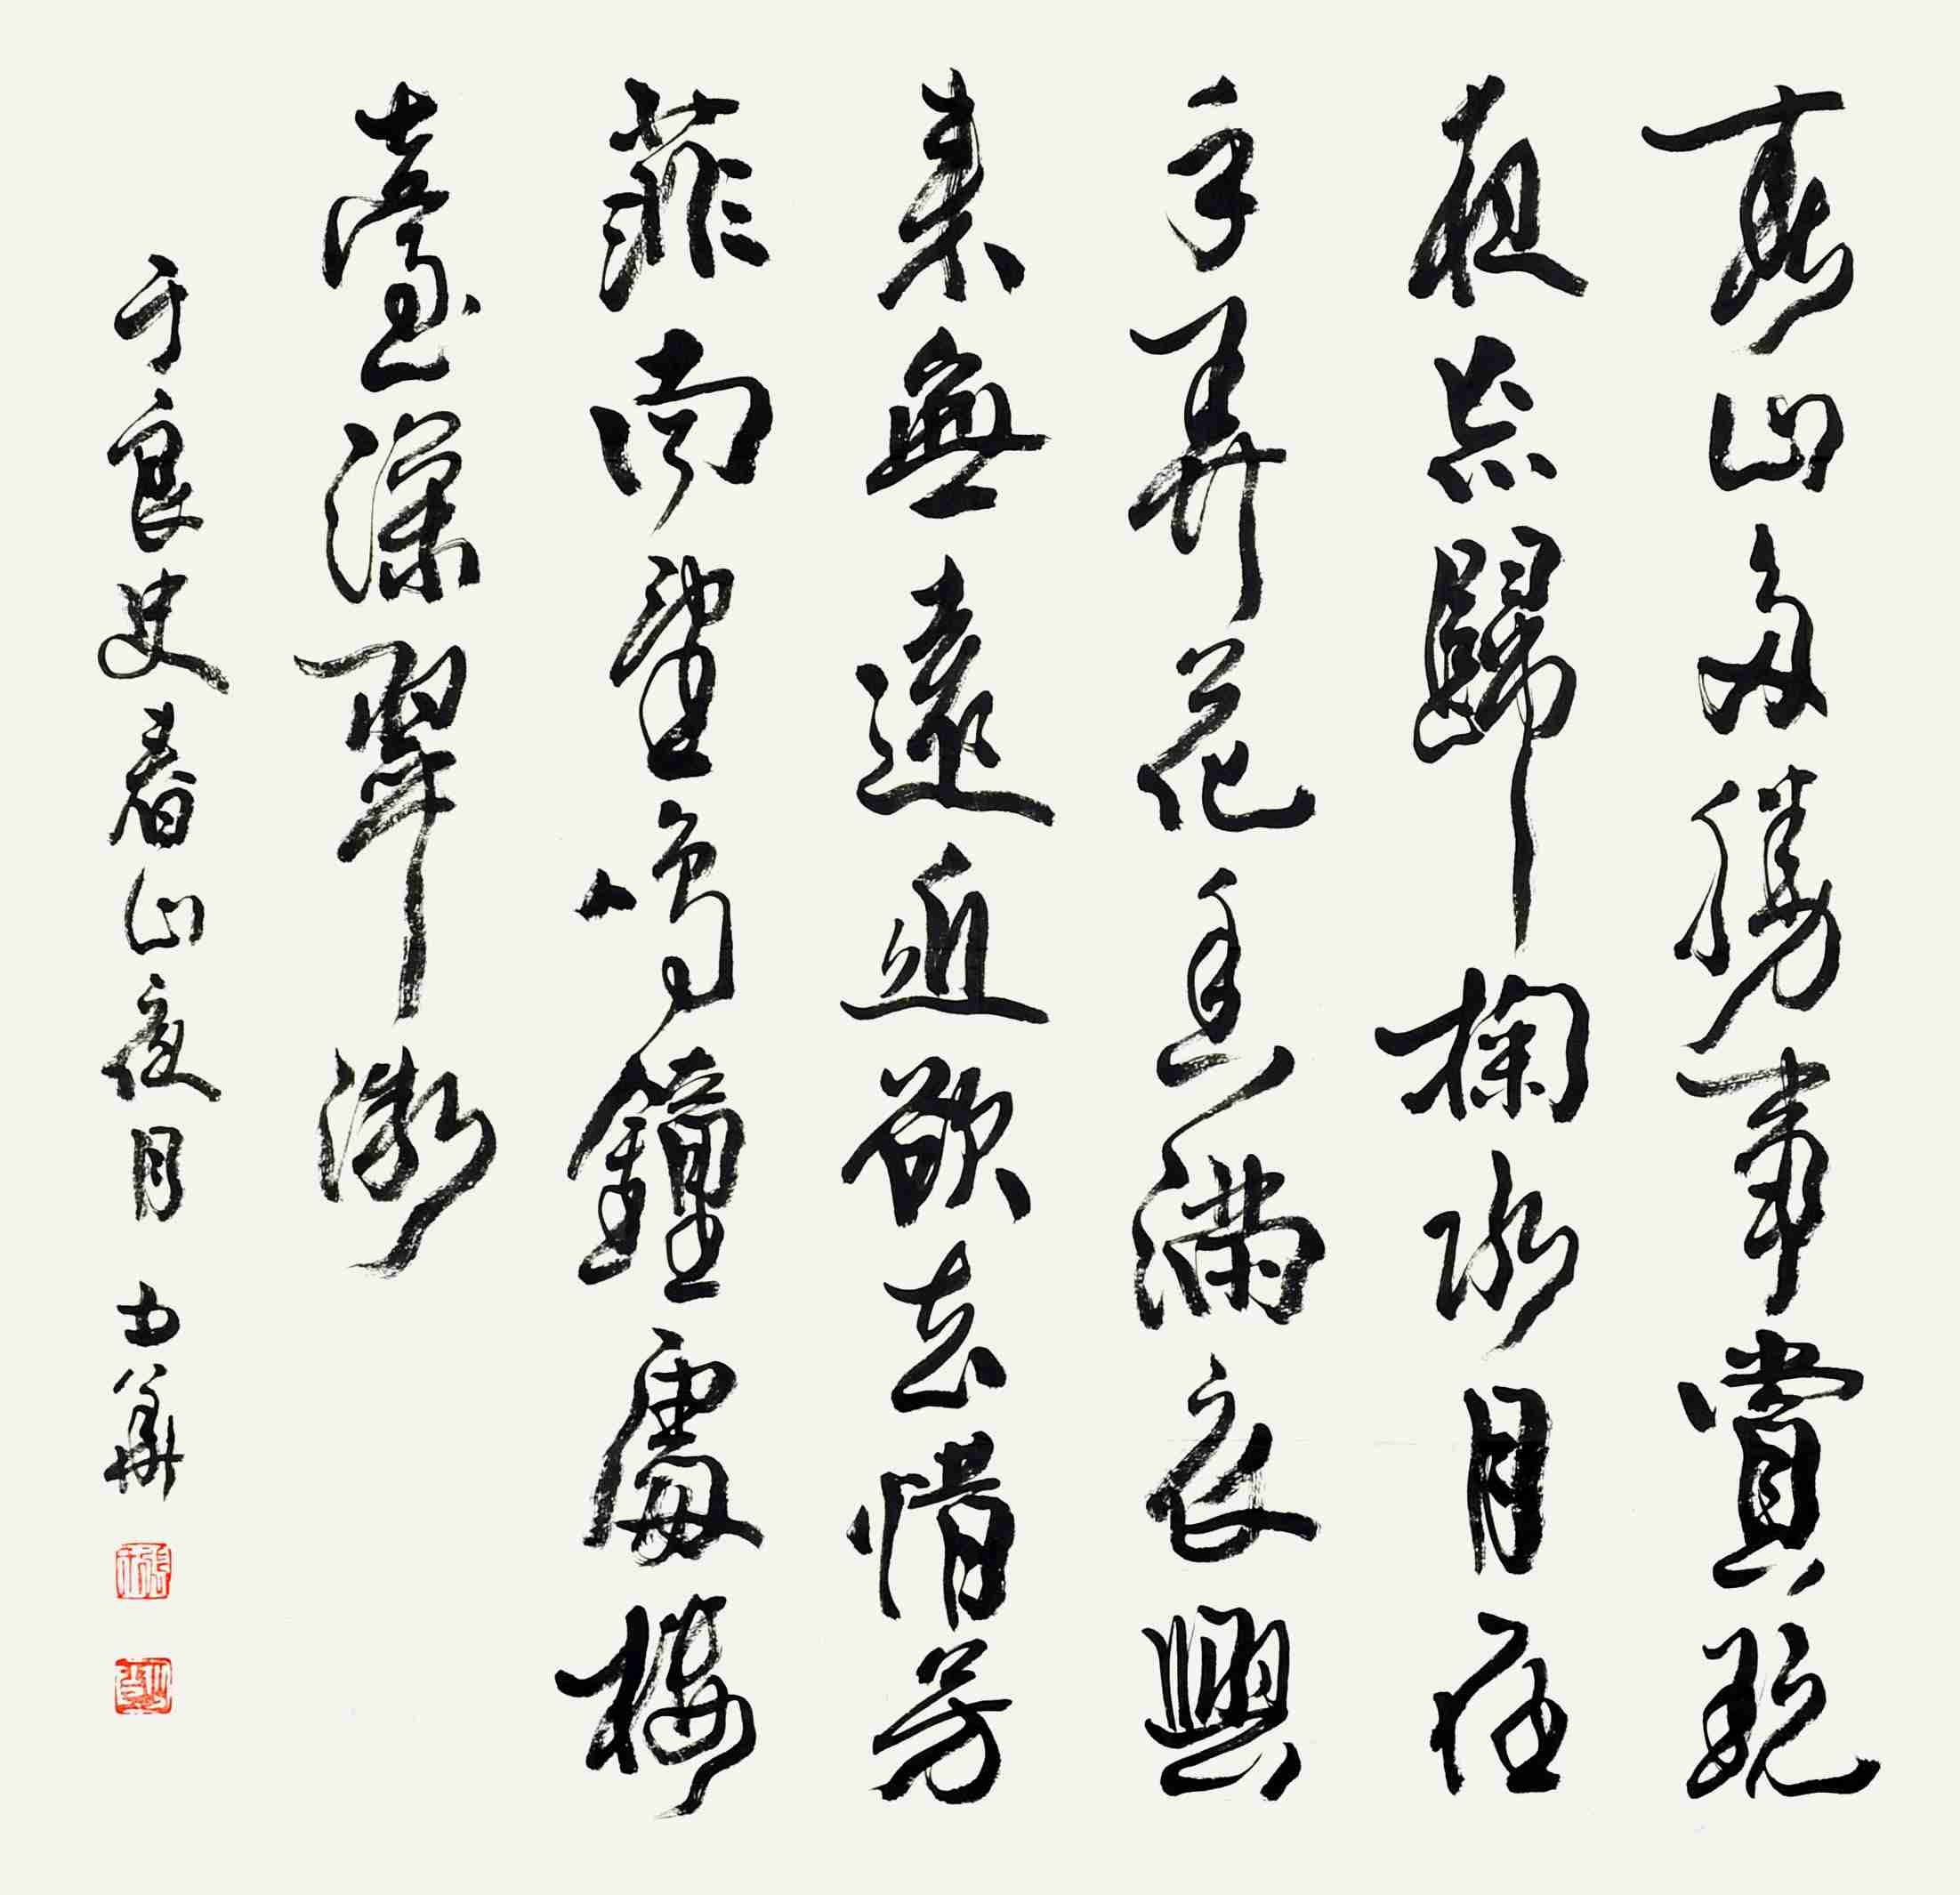 春山多勝事賞翫
夜忘歸掬水月在
手弄花香滿衣興
來無遠近欲去惜芳
菲南望鳴鐘處樓
臺深翠微
于良史春山夜月 士華